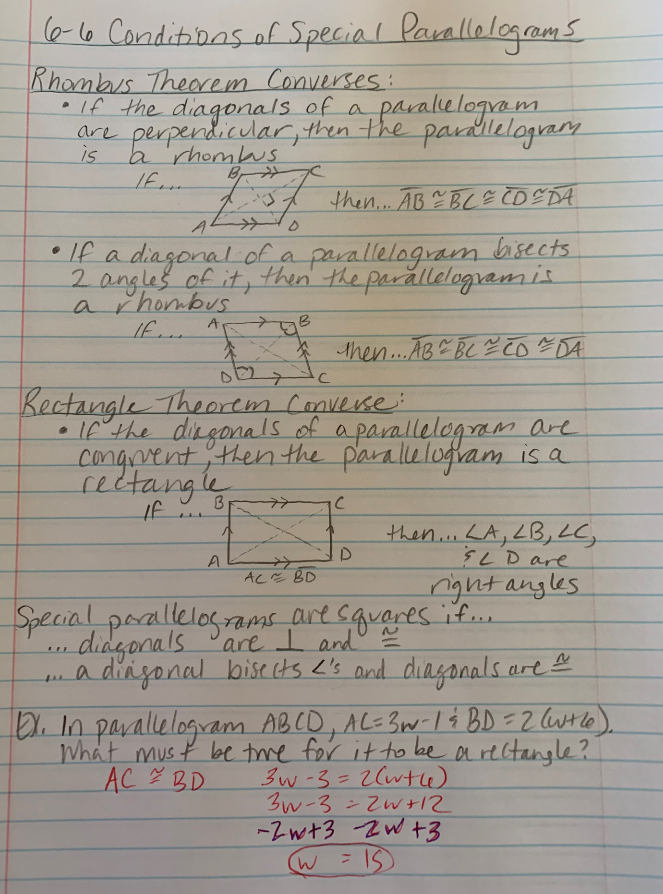 6-6 Conditions of Special Parallelograms
Rhombus Theorem Converses:
• If the diagonals of a parallelogram
are perpendicular, then the parallelogram
is a rhombus
If...
B C
A D
then... AB ≅ BC ≅ CD ≅ DA
• If a diagonal of a parallelogram bisects
2 angles of it, then the parallelogram is
a rhombus
If...
A B
D C
then... AB ≅ BC ≅ CD ≅ DA
Rectangle Theorem Converse:
• If the diagonals of a parallelogram are
congruent, then the parallelogram is a
rectangle
If ...
B C
A D
AC ≅ BD
then... ∠A, ∠B, ∠C,
& ∠D are
right angles
Special parallelograms are squares if...
... diagonals are ⊥ and ≅
... a diagonal bisects ∠'s and diagonals are ≅
Ex. In parallelogram ABCD, AC=3w-1 & BD=2(w+6).
What must be true for it to be a rectangle?
AC ≅ BD 3w-3=2(w+6)
3w-3=2w+12
-2w+3 -2w+3
w = 15